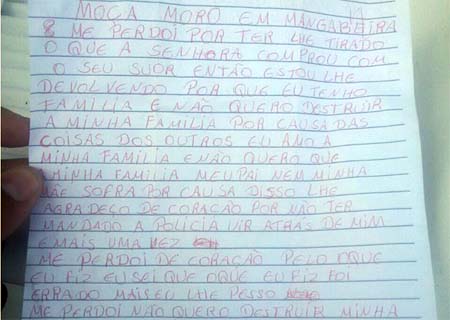 MOÇA MORO EM MANGABEIRA
& ME PERDOI POR TER LHE TIRADO
O QUE A SENHORA COMPROU COM
O SEU SUOR ENTÃO ESTOU LHE
DEVOLVENDO POR QUE EU TENHO
FAMILIA E NÃO QUERO DESTRUIR
A MINHA FAMILIA POR CAUSA DAS
COISAS DOS OUTROS EU ANO A
MINHA FAMILIA E NÃO QUERO QUE
MINHA FAMILIA MEU PAI NEM MINHA
MÃE SOFRA POR CAUSA DISSO LHE
AGRADEÇO DE CORAÇÃO POR NÃO TER
MANDADO A POLICIA VIR ATRÁS DE MIM
E MAIS UMA VEZ
ME PERDOI DE CORAÇÃO PELO OQUE
EU FIZ EU SEI QUE OQUE EU FIZ FOI
ERRADO MAIS EU LHE PESSO
ME PERDOI NÃO QUERO DESTRUIR MINHA